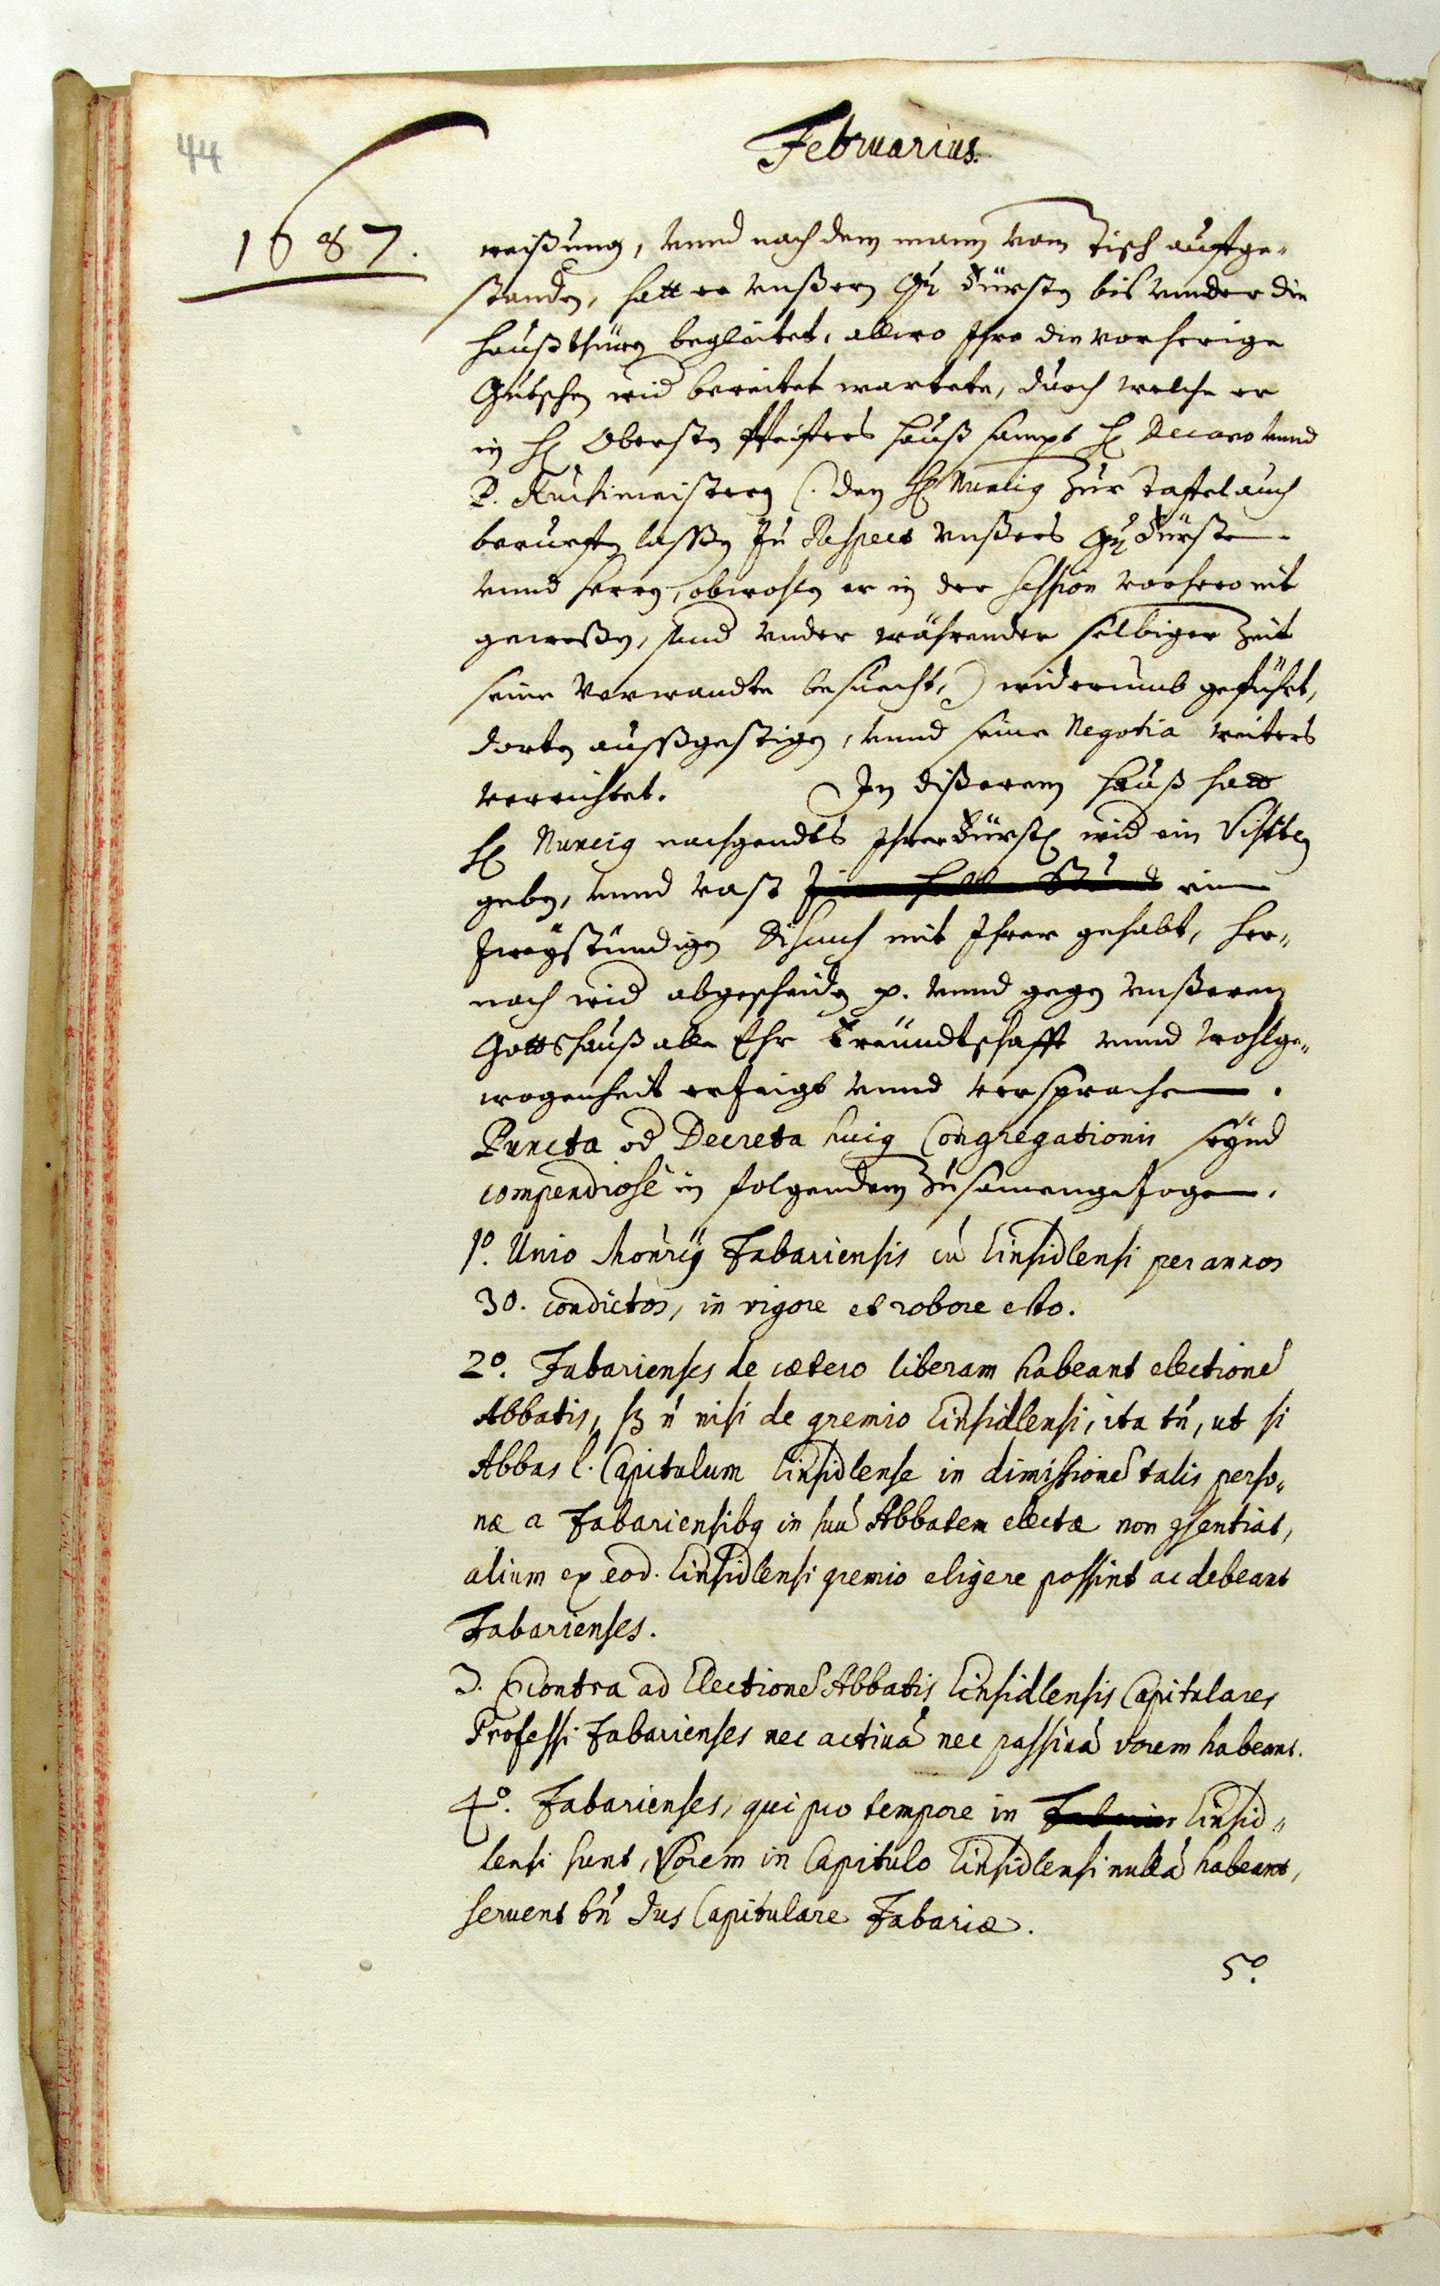 44
Februarius.
1687.
weißung, vnnd nach dem mann vom Tisch auffge-
standen, hatt er vnßern Gn Fürsten bis vnnder die
Haußthüren begleitet, allwo Ihro die vorherige
Gutschen wid bereitet wartete, durch welche er
in H Obersten Pfeiffers Hauß sampt H Decano vnnd
P. Kuchimeisteren (. den H Nuntig zur Taffel auch
beruoffen lassen zu Respect vnßers Gn Fürsten
vnnd Herren, obwohlen er in der session vorhero nit
geweßen, sond vnder währender selbiger Zeit
seine Verwandte besuecht,) widerumb geführt,
dorten aussgestigen, vnnd seine Negotia weiters
verrichtet. In dißerem Hauß hatt
H Nuncig nachgendts Ihrer Fürstl wid ein Visiten
geben, vnnd vast halb Stund ein
zweystündigen Discurs mit Ihrer gehabt, her-
nach wid abgescheiden p. vnnd gegen vnßerem
Gottshauß alle Ehr Freündtschafft vnnd wohlge-
wogenheit erzeigt vnnd versprochen.
Puncta od Decreta huig Congregationis seynd
compendiosè in folgendem zusamengezogen.
1º. Unio Monrij Fabariensis cũ Einsidlensi per annos
30. condictos, in vigore et robore esto.
2º. Fabarienses de cætero liberam habeant electionẽ
Abbatis, sz ñ nisi de gremio Einsidlensi, ita tñ, ut si
Abbas l. Capitulum Einsidlense in dimissionẽ talis perso-
næ a Fabariensibg in suũ Abbatem electæ non gsentiat,
alium ex eod. Einsidlensi gremio eligere possint ac debeant
Fabarienses.
3. Econtra ad Electionẽ Abbatis Einsidlensis Capitulares
Professi Fabarienses nec activã nec passivã vocem habeant.
4º. Fabarienses, qui pro tempore in Einsid-
lensi sunt, Vocem in Capitulo Einsidlensi nullã habeant,
servent tñ Jus Capitulare Fabariæ.
5º.